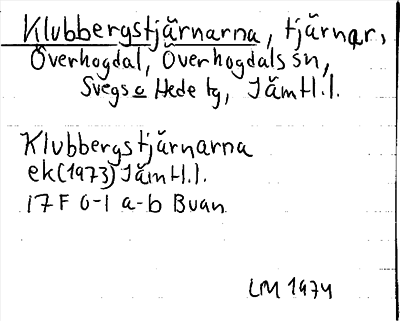 Klubbergstjärnarna, tjärnar,
Överhogdal, Överhogdals sn,
Svegs o Hede tg, Jämtl.l.
Klubbergstjärnarna
ek(1973) Jämtl.l.
17 F 0-1 a-b Buan
LM 1974